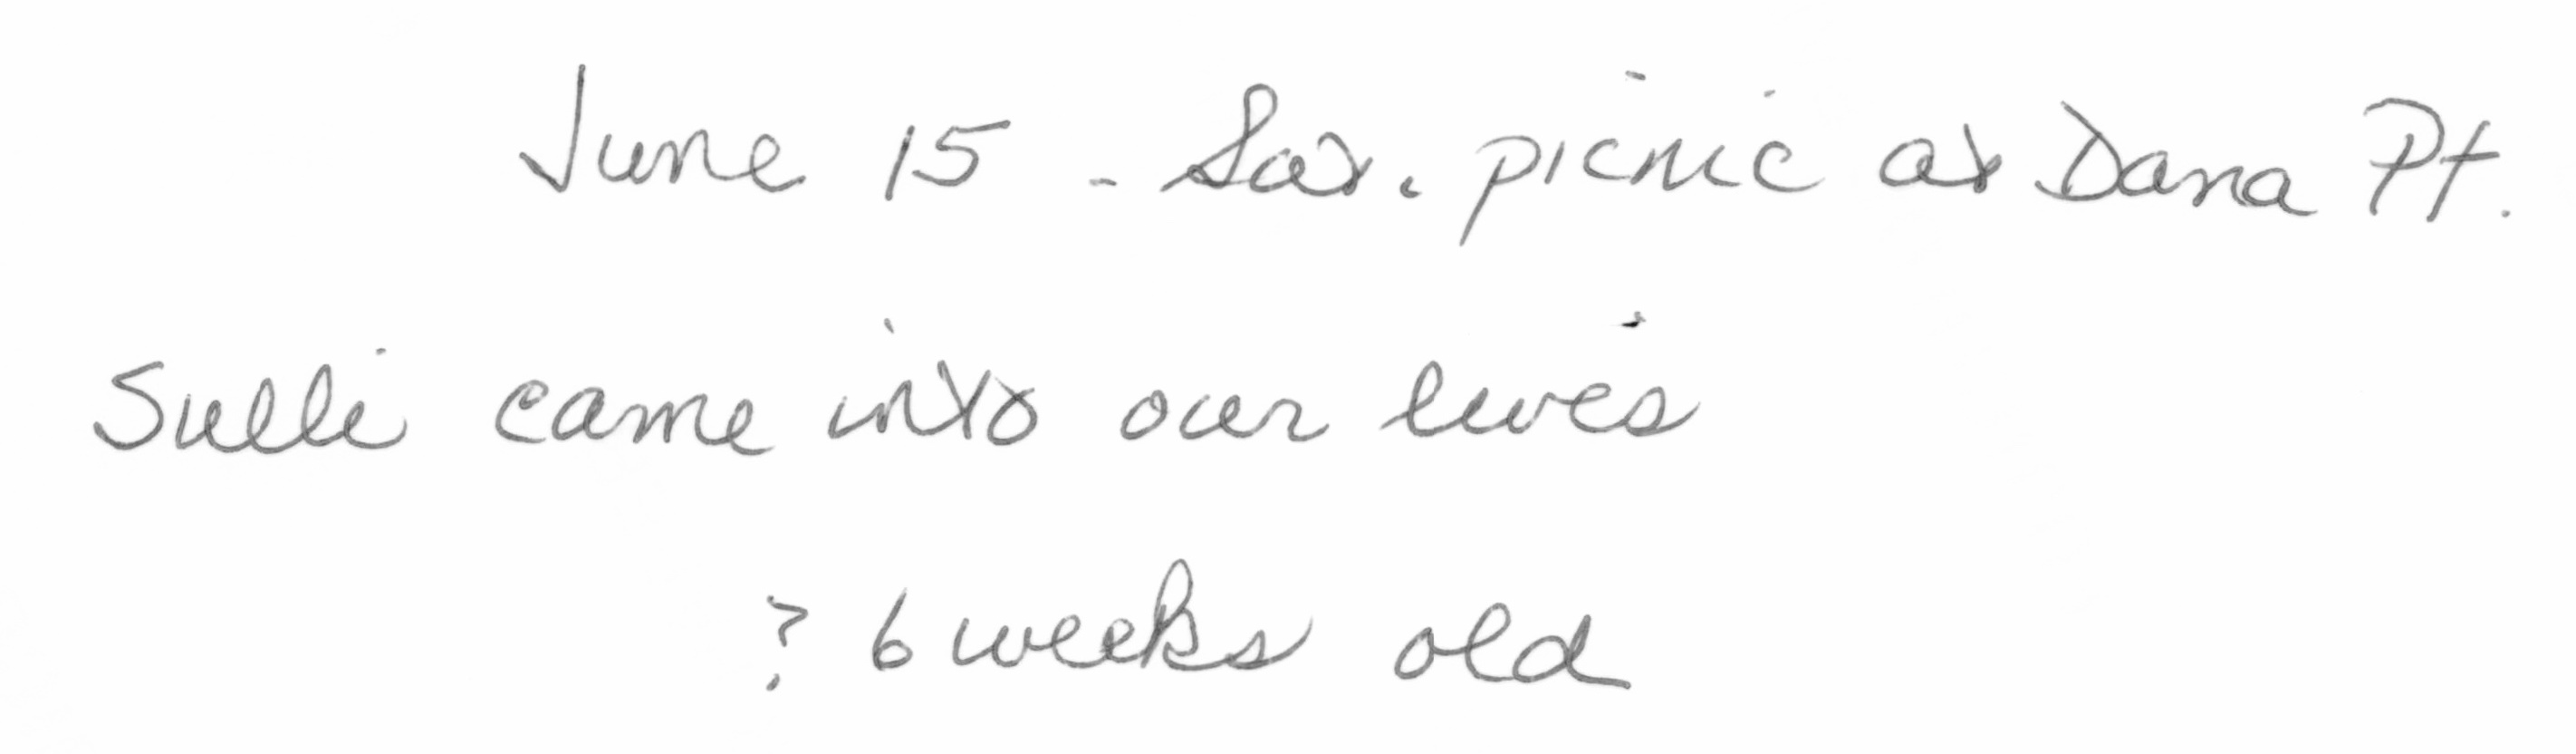 June 15 - Sat. picnic at Dana Pt.
Sulli came into our lives
? 6 weeks old